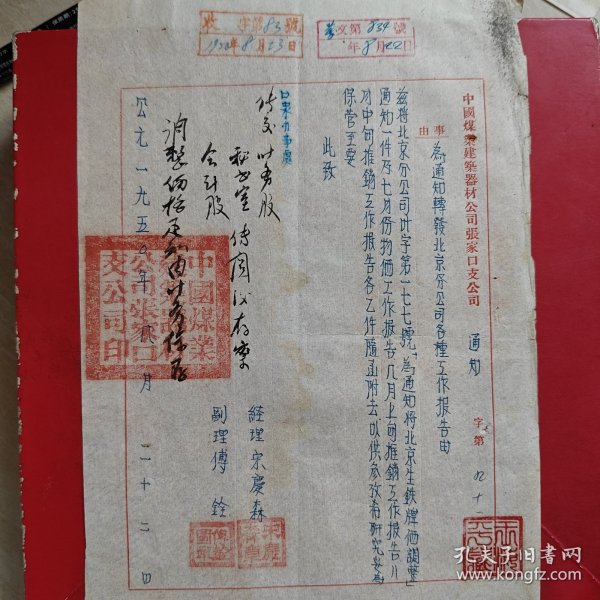 收 字第83號
1950年8月23日
業文第834號
年8月22日
中國煤業建築器材公司張家口支公司 通知 字第
事由 為通知轉發北京分公司各種工作報告由
茲將北京分公司計字第一七七號「為通知將北京生鉄牌価調整」
通知一件及七月份物価工作報告八月上旬推銷工作報告八
月中旬推銷工作報告各乙件隨函附去以供參攷希研究妥為
保管至要
此致
口泉办事處
經理 宋慶森
副理 傅銓
傳交 計劃股
秘書室 傳閱後存案
会計股
調整価格通知由計劃保存
公元一九五〇年 月 二十二
中國煤業建築器材公司張家口支公司印
孔夫子旧书网